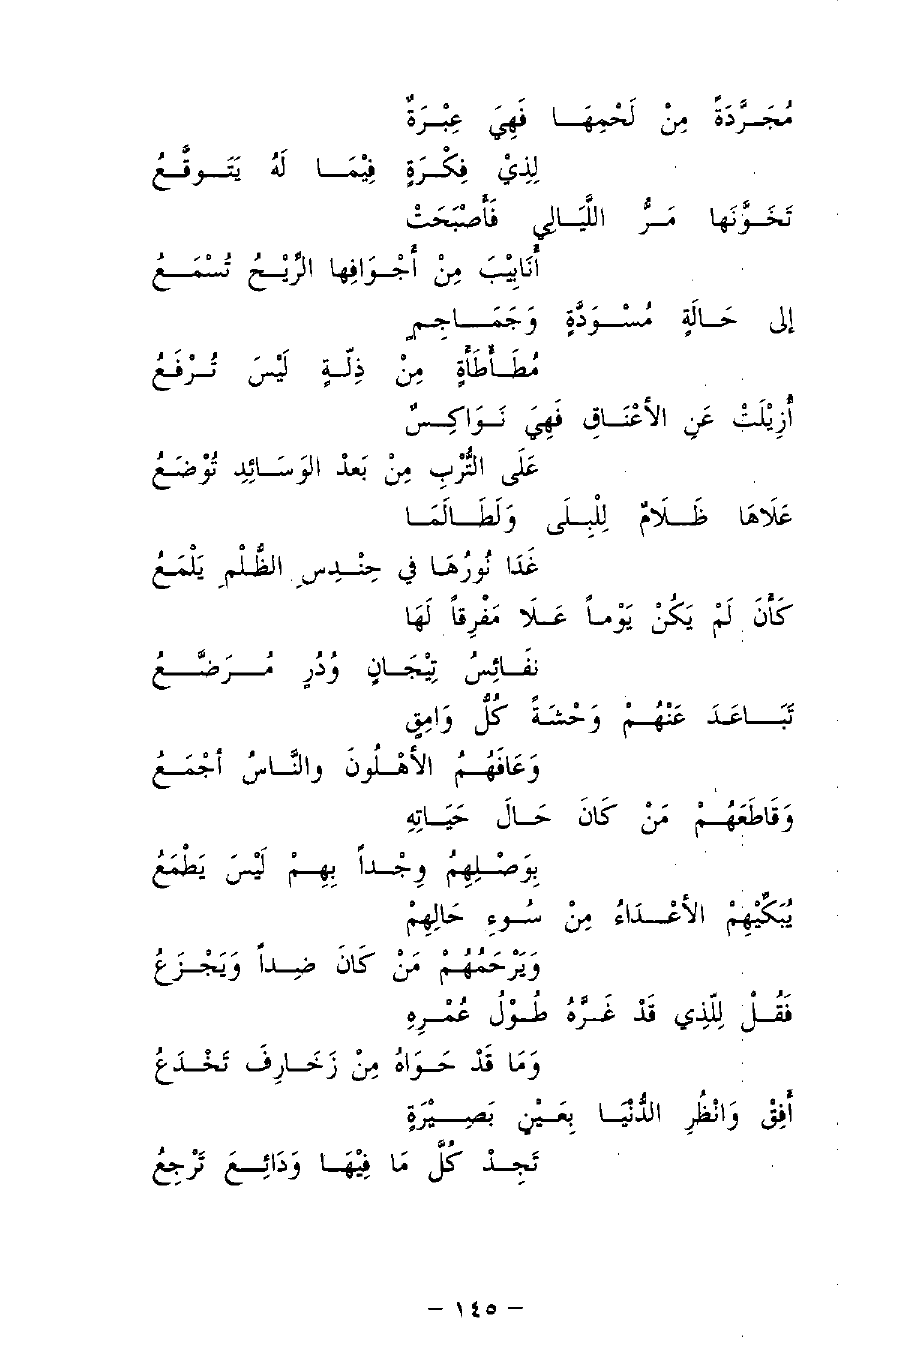 مُجَرَّدَةً مِنْ لَحْمِهَا فَهِيَ عِبْرَةٌ
لِذِيْ فِكْرَةٍ فِيْمَا لَهُ يَتَوقَّعُ
تَخَوَّنَها مَرُّ اللَّيَالِي فَأَصْبَحَتْ
أَنَابِيْبَ مِنْ أَجْوَافِها الرِّيْحُ تُسْمَعُ
إلى حَالَةٍ مُسْوَدَّةٍ وَجَمَاجِمٍ
مُطَأْطَأَةٍ مِنْ ذِلَّةٍ لَيْسَ تُرْفَعُ
أُزِيْلَتْ عَنِ الأَعْنَاقِ فَهِيَ نَوَاكِسٌ
عَلَى التُّرْبِ مِنْ بَعدْ الوَسَائِدِ تُوْضَعُ
عَلَاهَا ظَلَامٌ لِلْبِلَى وَلَطَالَمَا
غَدَا نُورُهَا في حِنْدِسِ الظُّلْمِ يَلْمَعُ
كَأَنَ لَمْ يَكُنْ يَوْماً عَلَا مَفْرِقاً لَهَا
نَفَائِسُ تِيْجَانٍ وُدُرٍ مُرَضَّعُ
تَبَاعَدَ عَنْهُمْ وَحْشَةً كُلُّ وَامِقٍ
وَعَافَهُمُ الأَهْلُونَ والنَّاسُ أَجْمَعُ
وَقَاطَعَهُمْ مَنْ كَانَ حَالَ حَيَاتِهِ
بِوَصْلِهِمُ وِجْداً بِهِمْ لَيْسَ يَطْمَعُ
يُبَكِّيْهِمْ الأَعْدَاءُ مِنْ سُوءِ حَالِهِمْ
وَيَرْحَمُهُمْ مَنْ كَانَ ضِداً وَيَجْزَعُ
فَقُلْ لِلَّذِي قَدْ غَرَّهُ طُوْلُ عُمْرِهِ
وَمَا قَدْ حَوَاهُ مِنْ زَخَارِفَ تَخْدَعُ
أَفِقْ وَانْظُرِ الدُّنْيَا بِعَيْنِ بَصِيْرَةٍ
تَجِدْ كُلَّ مَا فِيْهَا وَدَائِعَ تَرْجِعُ
- ١٤٥ -